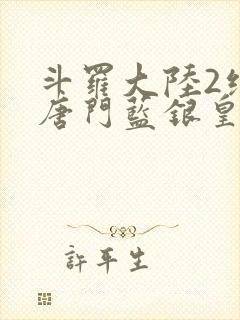 斗羅大陸2絕
唐門藍銀皇
許平生